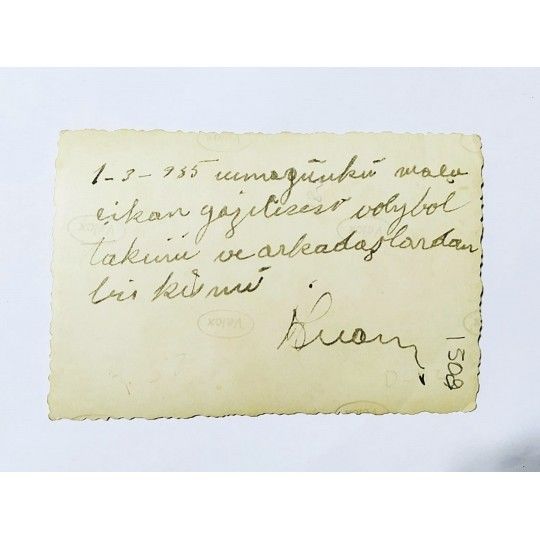 1-3-935 cumagünkü maça
çikan gazilisesi volybol
takımı ve arkadaşlardan
bir kısmı
Velox
Velox
1509